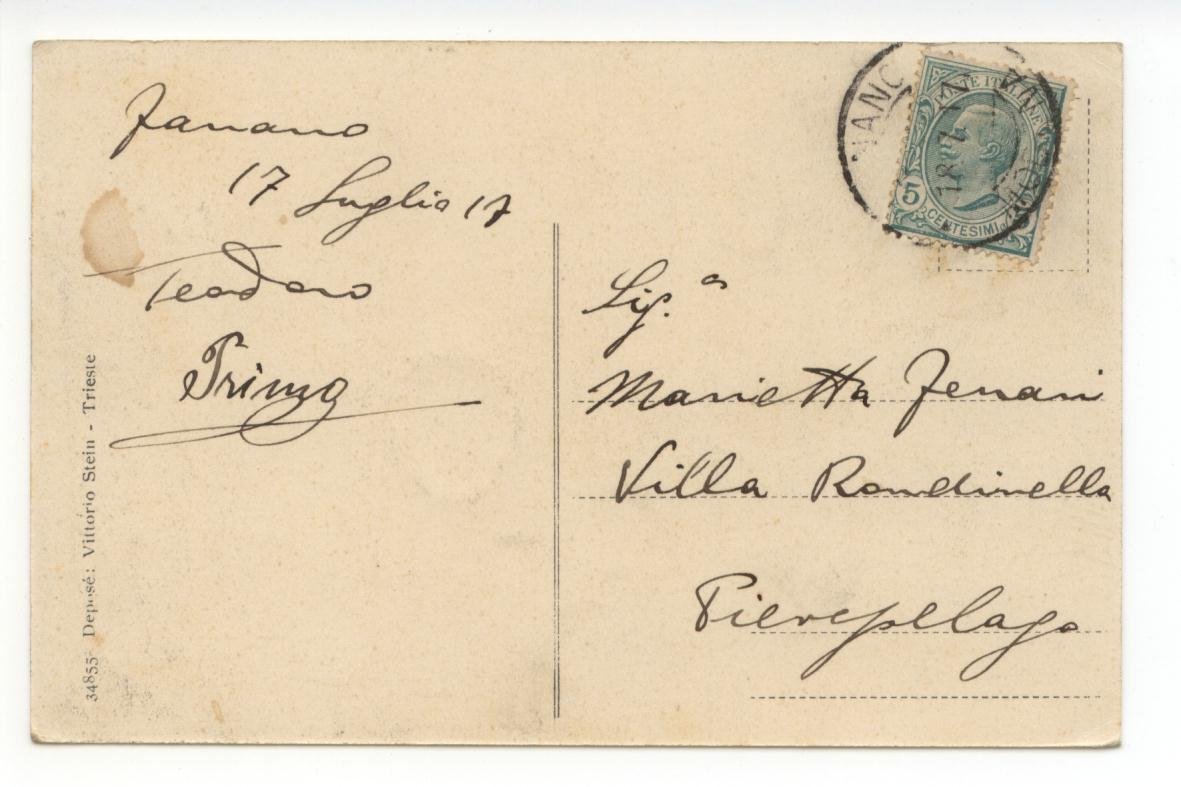 Fanano
17 Luglio 17
Teodoro
Primo
34855 Deposé: Vittorio Stein - Trieste
POSTE ITALIANE
5
CENTESIMI
18. 7. 17
Sig.a
Marietta Ferrari
Villa Rondinella
Pievepelago